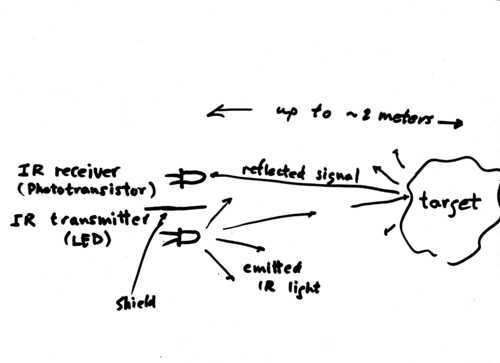 up to ~2 meters
IR receiver
(Phototransistor)
reflected signal
target
IR transmitter
(LED)
emitted
IR light
Shield